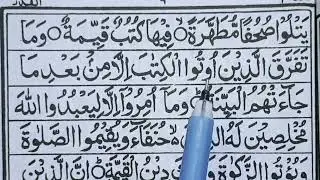 يَتْلُوْا صُحُفًا مُّطَهَّرَةً ۝ فِيْهَا كُتُبٌ قَيِّمَةٌ ۝ وَمَا
تَفَرَّقَ الَّذِيْنَ اُوْتُوا الْكِتٰبَ اِلَّا مِنْۢ بَعْدِ مَا
جَآءَتْهُمُ الْبَيِّنَةُ ۝ وَمَآ اُمِرُوْٓا اِلَّا لِيَعْبُدُوا اللّٰهَ
مُخْلِصِيْنَ لَهُ الدِّيْنَ حُنَفَآءَ وَيُقِيْمُوا الصَّلٰوةَ
وَيُؤْتُوا الزَّكٰوةَ دِيْنُ الْقَيِّمَةِ ۝ اِنَّ الَّذِيْنَ